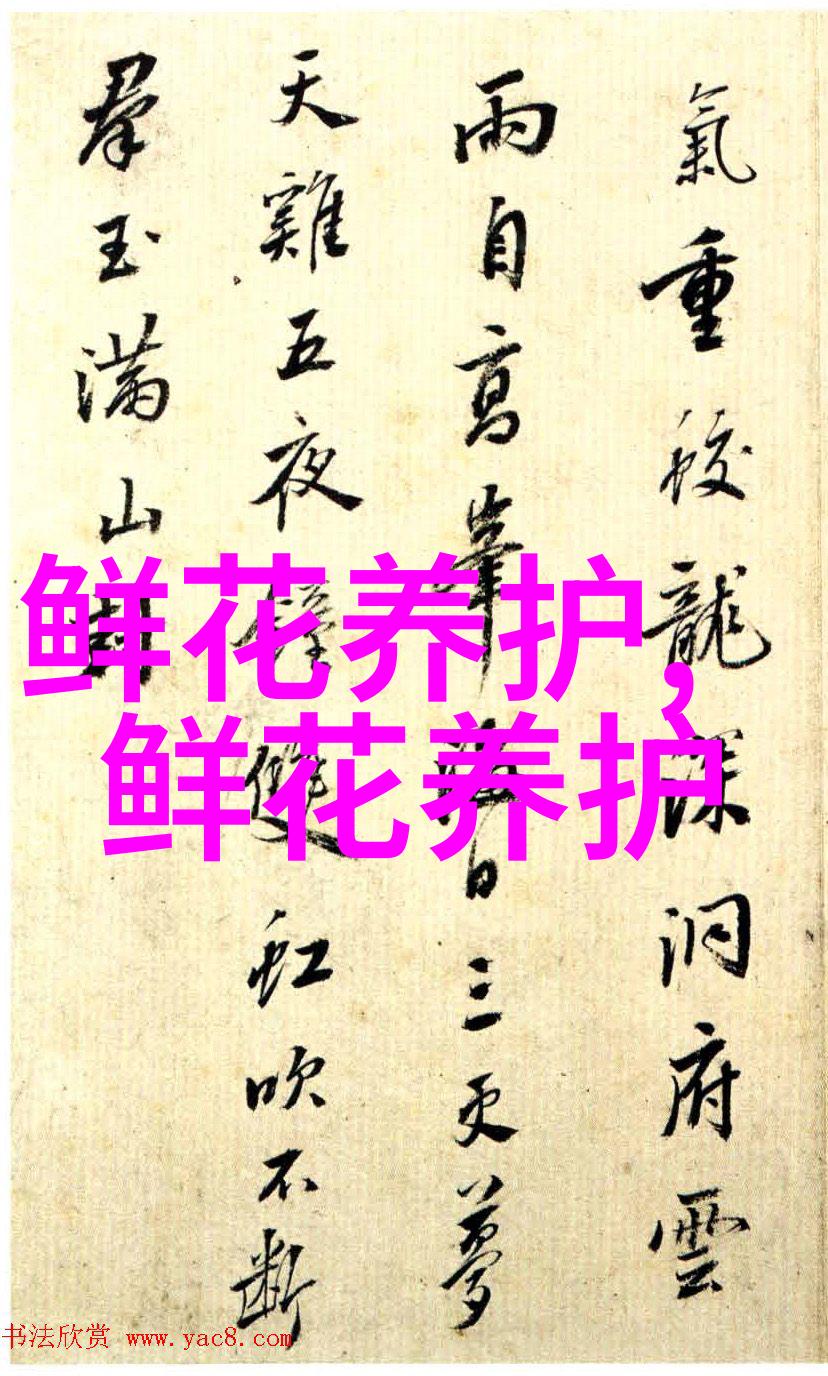 氣重蛟龍深洞府雲
雨自高峯海日三更夢
天雞五夜鐘雙虹吹不斷
羣玉滿山封
鲜花养护,
鲜花养护
书法欣赏 www.yac8.com